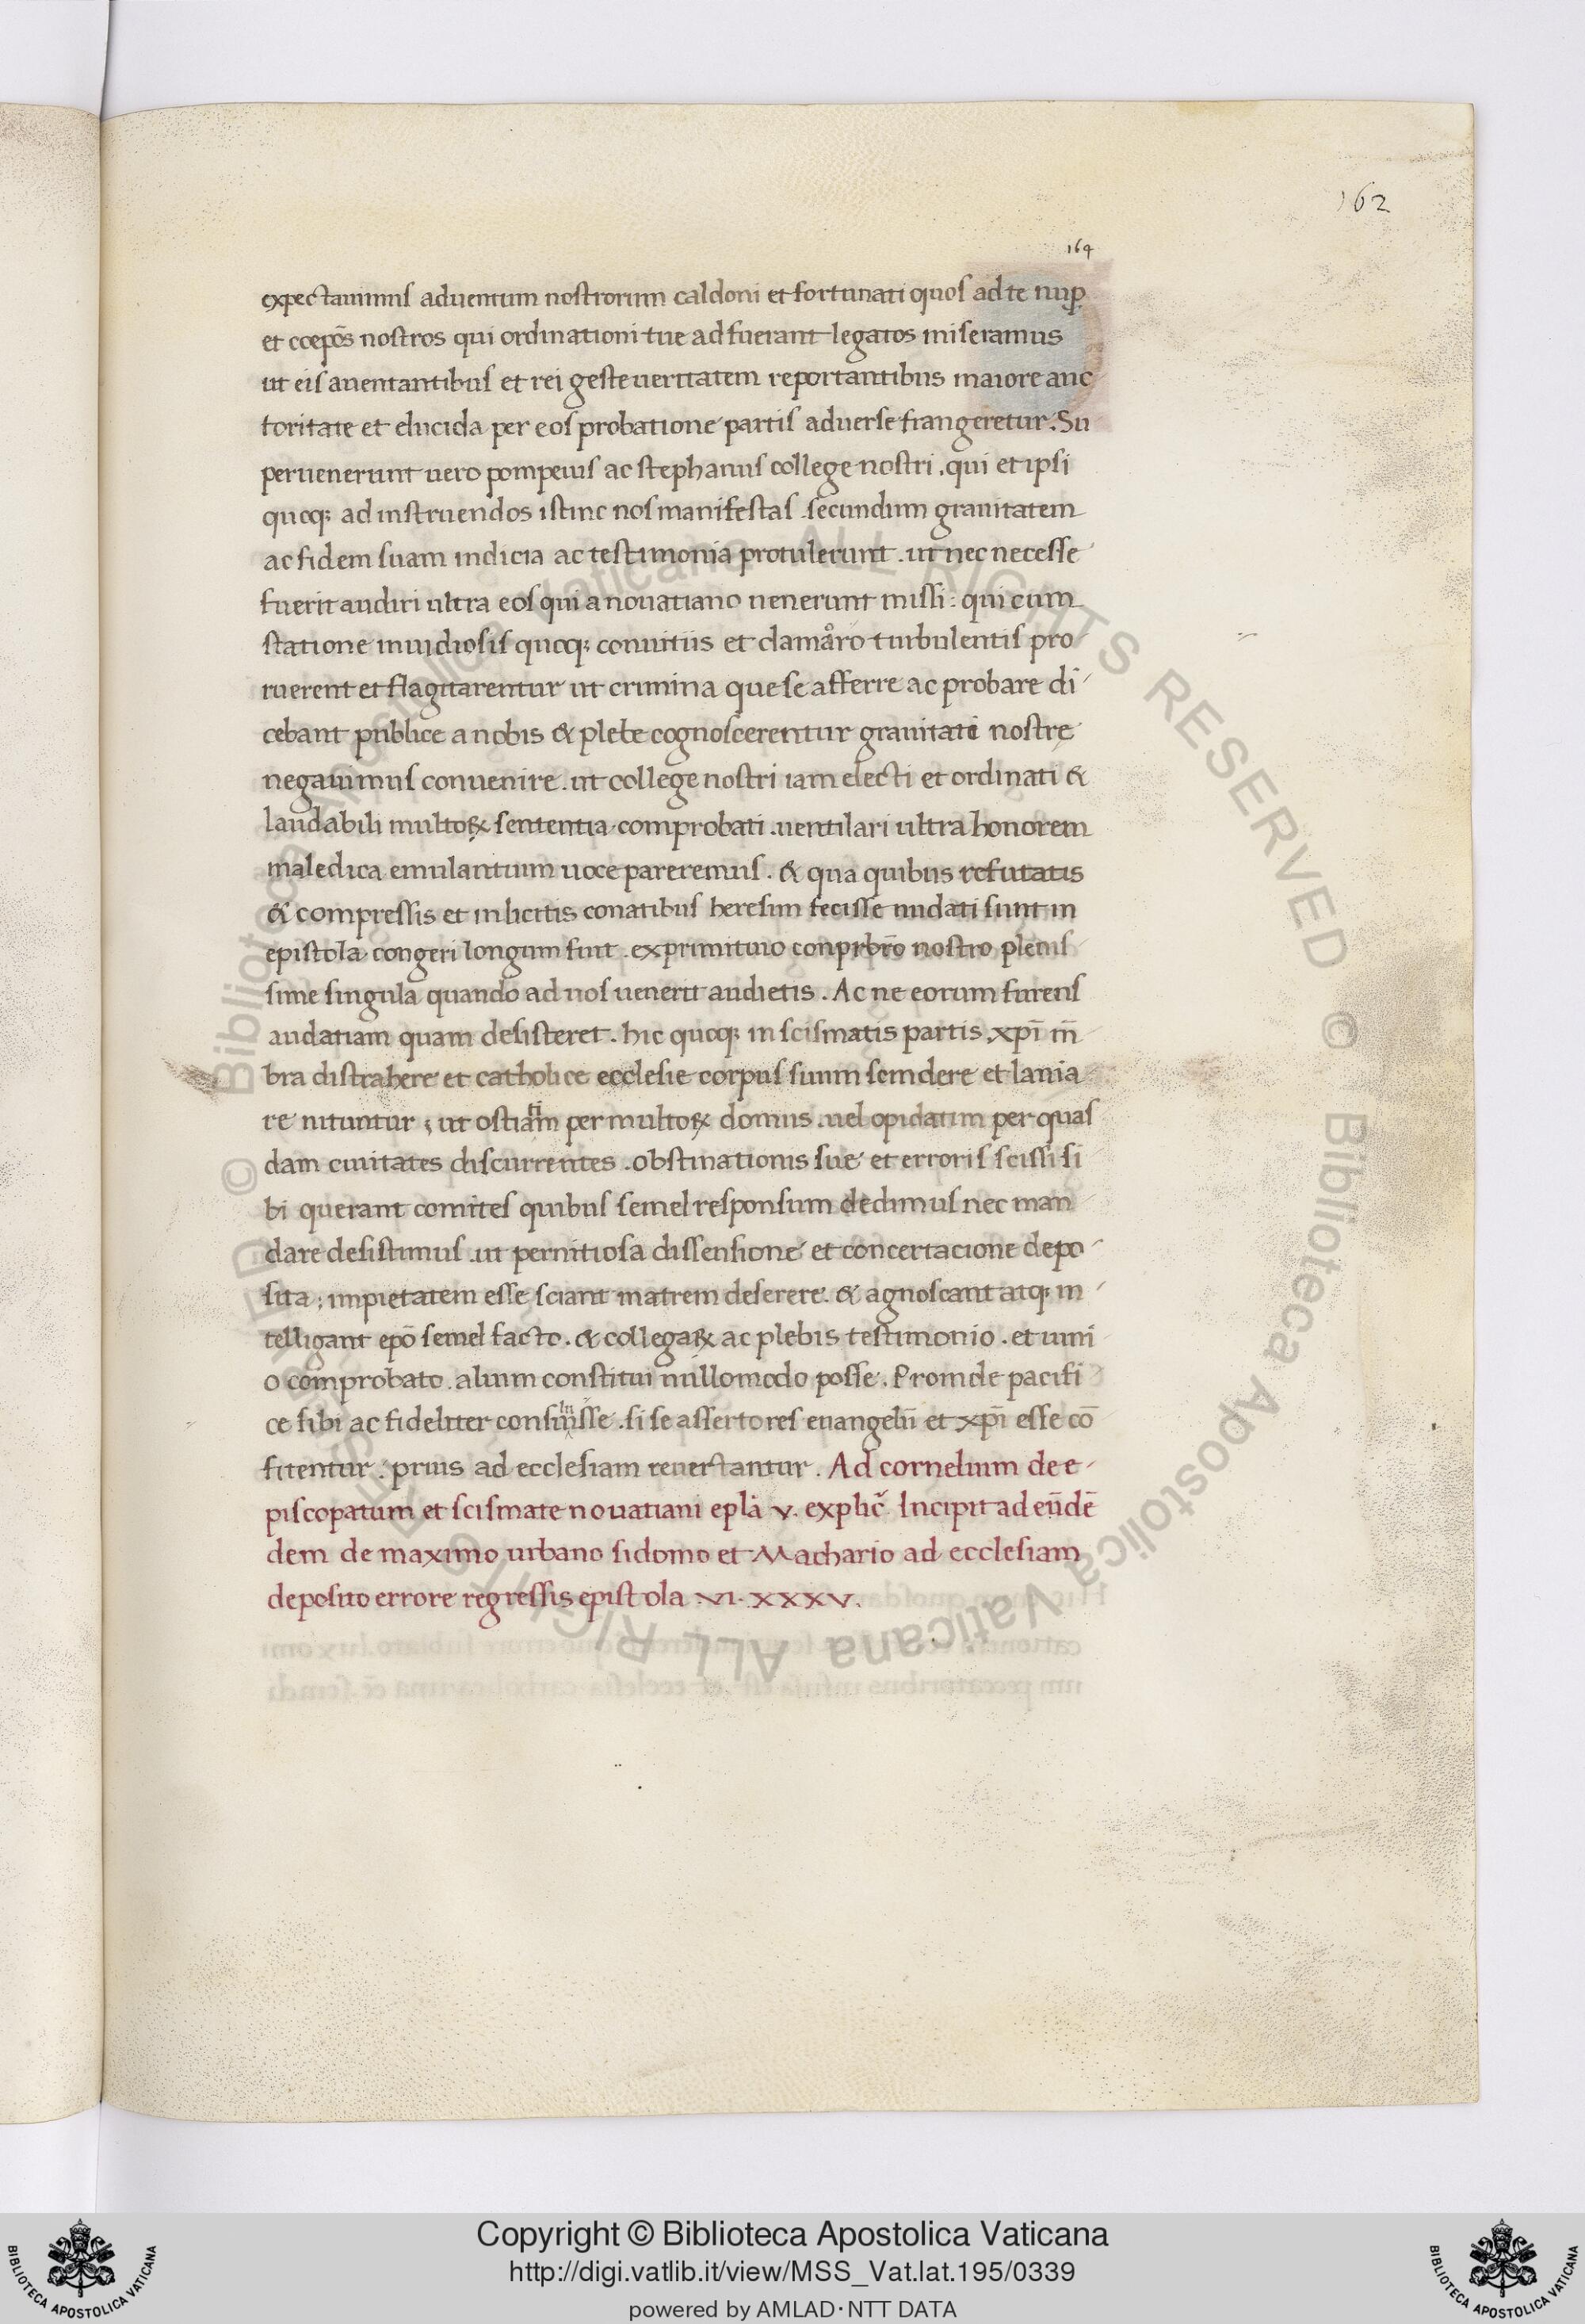 162
164
expectauimus aduentum nostrorum caldoni et fortunati quos ad te nup̱
et coep̄os nostros qui ordinationi tue ad fuerant legatos miseramus
ut eis auentantibus et rei geste ueritatem reportantibus maiore auc
toritate et elucida per eos probatione partis aduerse frangeretur. Su
peruenerunt uero pompeius ac stephanus college nostri. qui et ipsi
quoq; ad instruendos istinc nos manifestas. secundum grauitatem
ac fidem suam indicia ac testimonia protulerunt. ut nec necesse
fuerit audiri ultra eos qui a nouatiano uenerunt missi: qui cum
statione inuidiosis quoq; conuitiis et clamåro turbulentis pro
ruerent et flagitarentur ut crimina que se afferre ac probare di
cebant publice a nobis & plebe cognoscerentur grauitati nostre
negauimus conuenire. ut college nostri iam electi et ordinati &
laudabili multoꝝ sententia comprobati. uentilari ultra honorem
maledica emulantium uoce pareremus. & qua quibus refutatis
& compressis et inlicitis conatibus heresim fecisse nudati sunt in
epistola congeri longum fuit. ex primituio conprbr̄o nostro plenis
sime singula quando ad nos uenerit audietis. Ac ne eorum furens
audatiam quam desisteret. hic quoq; in scismatis partis xp̄i m̄
bra distrahere et catholice ecclesie corpus suum scindere et lania
re nituntur; ut ostiatim per multoꝝ domus. uel opidatim per quas
dam ciuitates discurrentes. obstinationis sue et erroris scissi si
bi querant comites quibus semel responsum dedimus nec man
dare desistimus. ut pernitiosa dissensione et concertacione depo
sita; impietatem esse sciant matrem deserere. & agnoscant atq; in
telligant ep̄o semel facto. & collegaꝝ ac plebis testimonio. et iuni
o comprobato. alium constitui nullomodo posse. Proinde pacifi
ce sibi ac fideliter consuluisse. si se assertores euangelii et xp̄i esse cō
fitentur. prius ad ecclesiam reuertantur. Ad cornelium de e
piscopatum et scismate nouatiani epl̄a v. explic̄. Incipit ad eūdē
dem de maximo urbano sidomo et Machario ad ecclesiam
deposito errore regressis epistola VI. XXXV.
© Biblioteca Apostolica Vaticana ALL RIGHTS RESERVED © Biblioteca Apostolica Vaticana ALL RIGHTS RESERVED
Copyright © Biblioteca Apostolica Vaticana
http://digi.vatlib.it/view/MSS_Vat.lat.195/0339
powered by AMLAD·NTT DATA
BIBLIOTECA APOSTOLICA VATICANA
BIBLIOTECA APOSTOLICA VATICANA